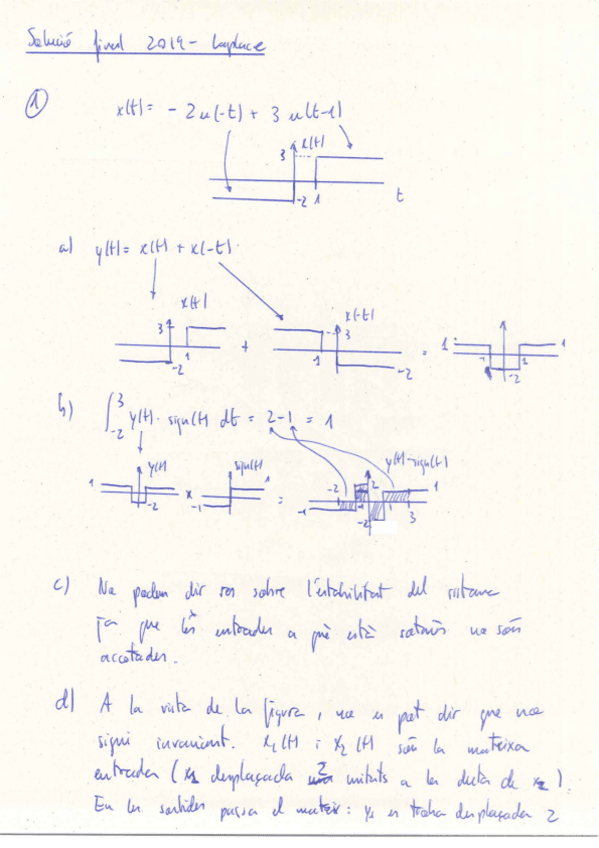 Solució final 2019 - Laplace
1
x(t) = - 2 u(-t) + 3 u(t-1)
3 x(t)
-2 1 t
a) y(t) = x(t) + x(-t)
x(t) x(-t)
3 1 -2 + 1 3 -2 = 1 -1 1 -2 1
b) ∫_{-2}^{3} y(t) · sign(t) dt = 2-1 = 1
y(t) sign(t) y(t)·sign(t)
1 -2 x -1 1 = -1 -2 -1 2 1 3 1 -2
c) No podem dir res sobre l'estabilitat del sistema
ja que les entrades a què està sotmès no són
acotades.
d) A la vista de la figura, no es pot dir que no
sigui invariant. x₁(t) i x₂(t) són la mateixa
entrada (x₁ desplaçada 2 unitats a la dreta de x₂).
En les sortides passa el mateix: y₁ es troba desplaçada 2